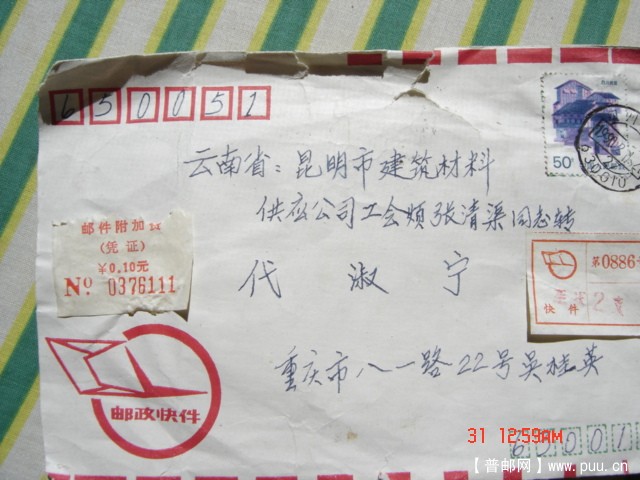 650051
50分
云南省：昆明市建筑材料
供应公司工会烦张清渠同志转
邮件附加费
(凭证)
￥0.10元
Nº 0376111
代 淑 宁
第0886号
重庆2支
快件
重庆市八一路22号吴桂英
邮政快件
31 12:59AM
63001
【普邮网】www.puu.cn